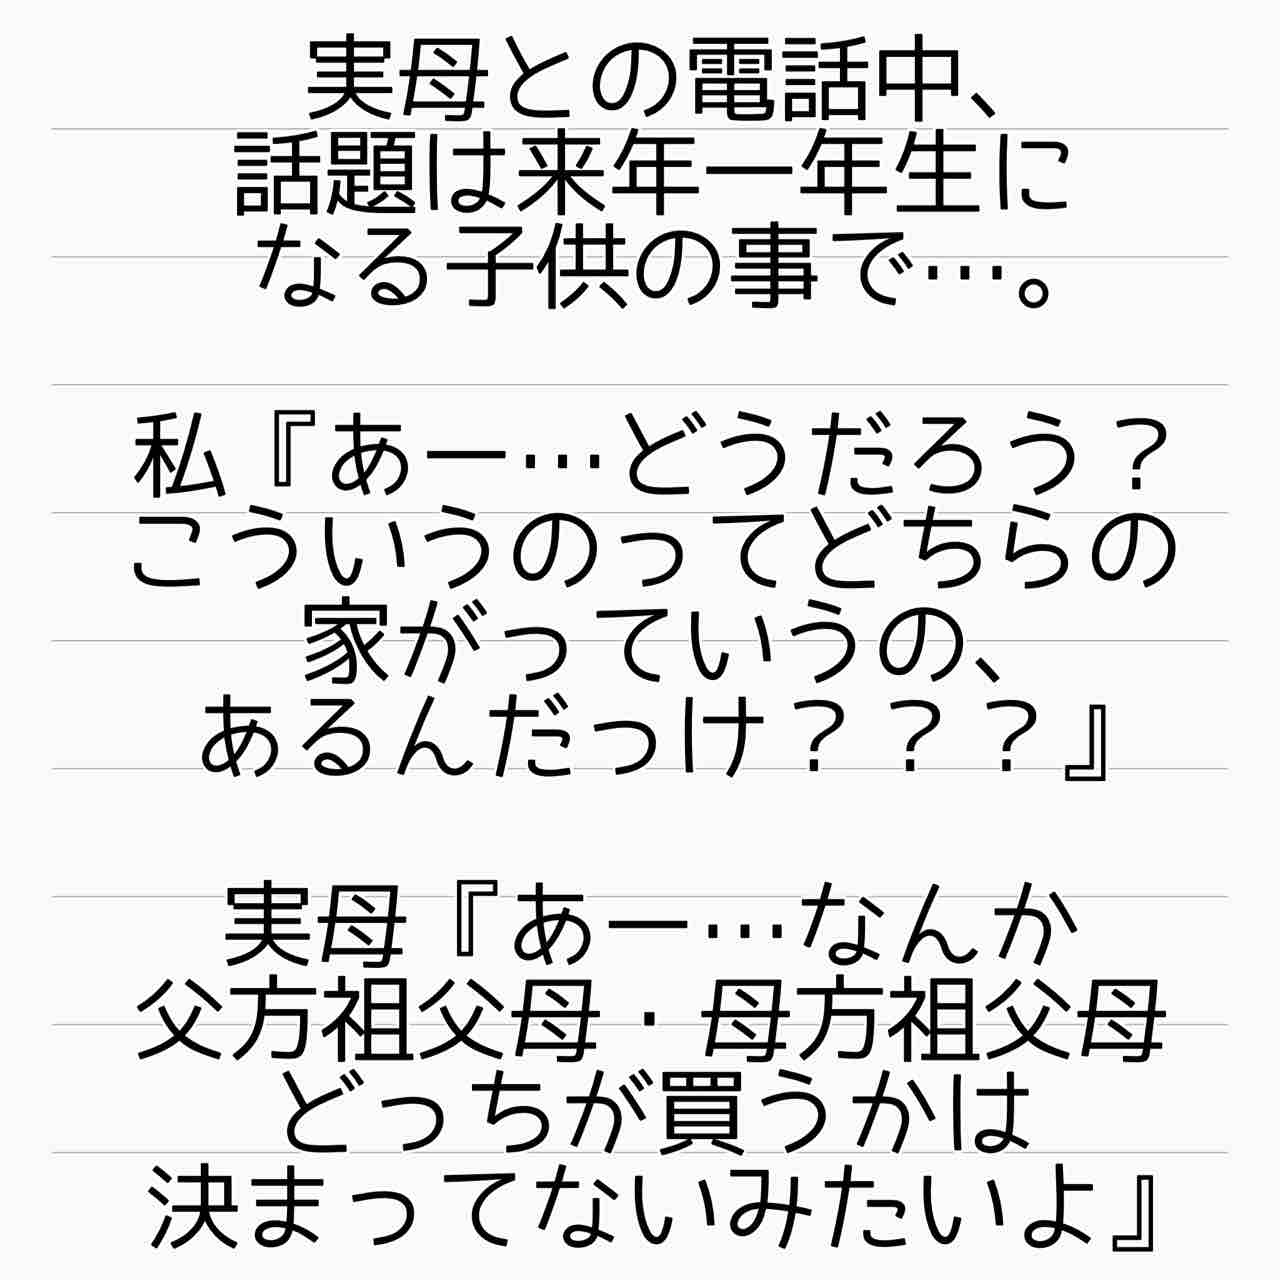 実母との電話中、
話題は来年一年生に
なる子供の事で…。
私『あー…どうだろう？
こういうのってどちらの
家がっていうの、
あるんだっけ？？？』
実母『あー…なんか
父方祖父母・母方祖父母
どっちが買うかは
決まってないみたいよ』